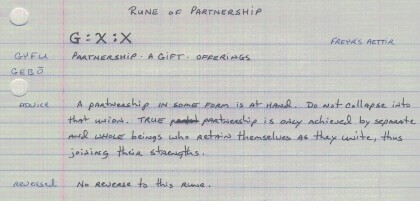 RUNE OF PARTNERSHIP
G : X : X
FREYR'S AETTIR
GYFU PARTNERSHIP · A GIFT · OFFERINGS
GEBO
ADVICE A partnership IN SOME FORM IS AT HAND. DO NOT COLLAPSE INTO
that UNION. TRUE partnership IS ONLY Achieved by separate
AND WHOLE beings who RETAIN themselves AS they UNITE, thus
joining their strengths.
REVERSED No REVERSE to this RUNE.